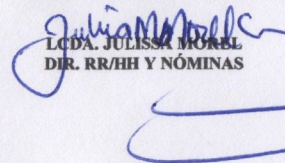 LCDA. JULISSA MOREL
DIR. RR/HH Y NÓMINAS